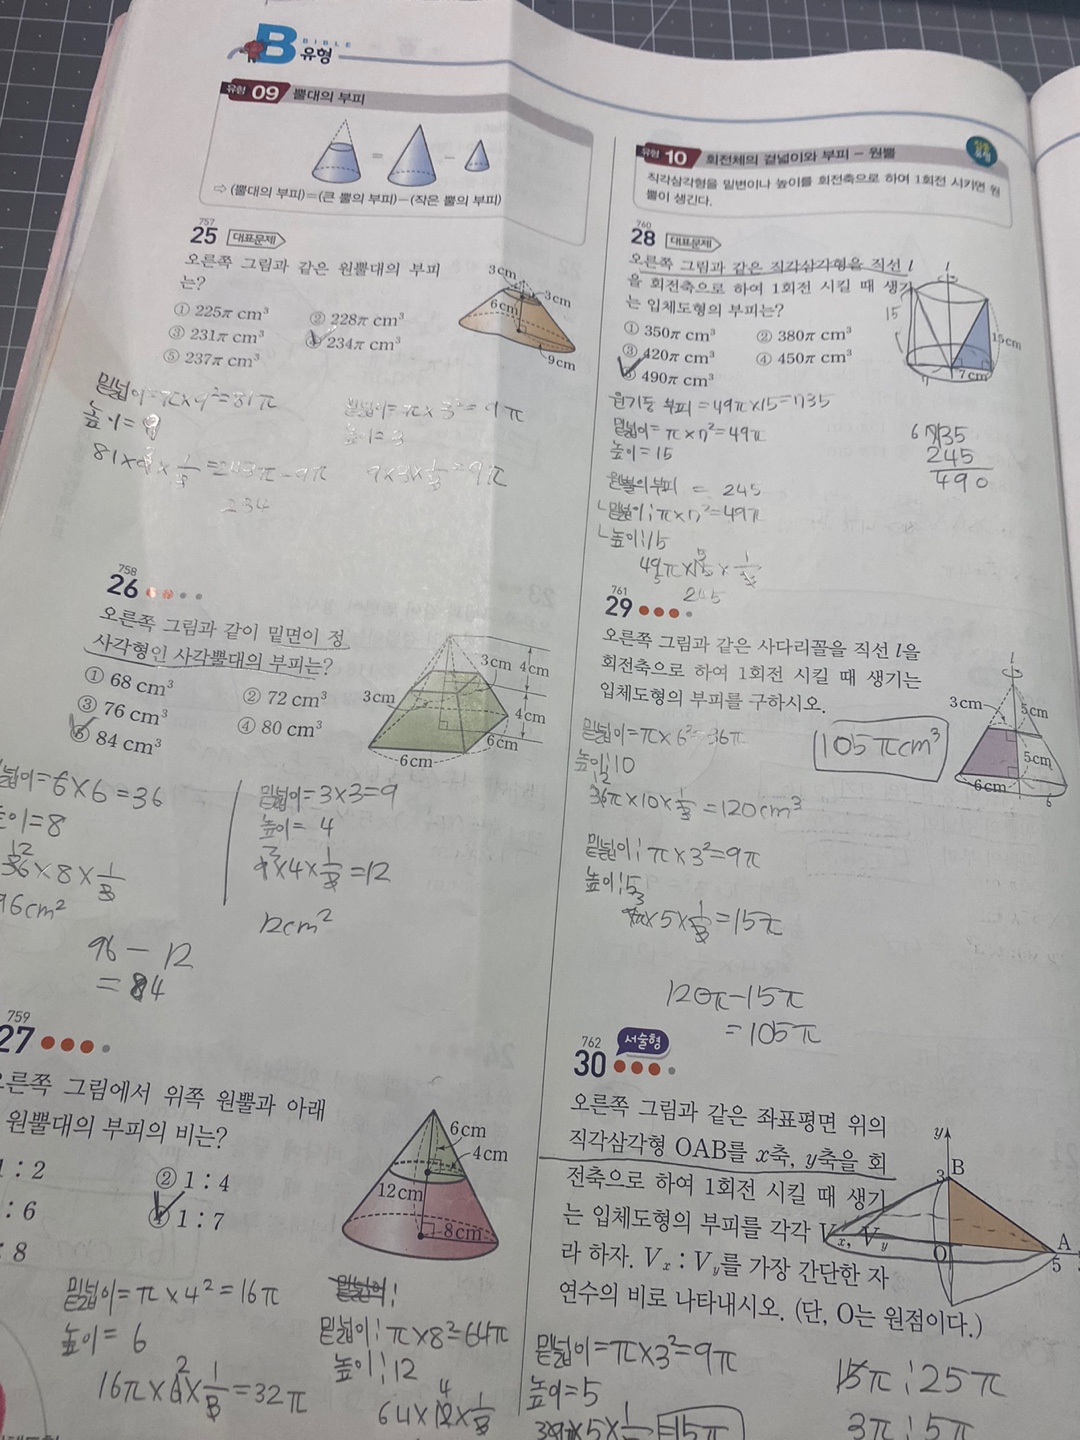 BIBLE
B 유형
유형 09 뿔대의 부피
⇨ (뿔대의 부피)=(큰 뿔의 부피)-(작은 뿔의 부피)
757
25 대표문제
오른쪽 그림과 같은 원뿔대의 부피
는?
① 225π cm³ ② 228π cm³
③ 231π cm³ ④ 234π cm³
⑤ 237π cm³
3cm
3cm
6cm
9cm
밑넓이=π×9²=81π
높이=9
밑넓이=π×3²=9π
높이=3
9×3×1/3=9π
234
758
26
오른쪽 그림과 같이 밑면이 정
사각형인 사각뿔대의 부피는?
① 68 cm³ ② 72 cm³
③ 76 cm³ ④ 80 cm³
⑤ 84 cm³
3cm 4cm
3cm
4cm
6cm
6cm
밑넓이=6×6=36
높이=8
36×8×1/3
96cm²
밑넓이=3×3=9
높이=4
9×4×1/3=12
12cm²
96-12
=84
759
27
오른쪽 그림에서 위쪽 원뿔과 아래
원뿔대의 부피의 비는?
1 : 2 ② 1 : 4
: 6 ④ 1 : 7
: 8
6cm
4cm
12cm
8cm
밑넓이=π×4²=16π
높이=6
16π×6×1/3=32π
밑넓이:π×8²=64π
높이:12
64×12×1/3
유형 10 회전체의 겉넓이와 부피 - 원뿔
직각삼각형을 밑변이나 높이를 회전축으로 하여 1회전 시키면 원
뿔이 생긴다.
760
28 대표문제
오른쪽 그림과 같은 직각삼각형을 직선 l
을 회전축으로 하여 1회전 시킬 때 생기
는 입체도형의 부피는?
① 350π cm³ ② 380π cm³
③ 420π cm³ ④ 450π cm³
⑤ 490π cm³
l
15
15cm
7cm
7
원기둥 부피=49π×15=735
밑넓이=π×7²=49π
높이=15
원뿔의 부피 = 245
└밑넓이:π×7²=49π
└높이:15
49π×15×1/3
245
735
245
490
761
29
오른쪽 그림과 같은 사다리꼴을 직선 l을
회전축으로 하여 1회전 시킬 때 생기는
입체도형의 부피를 구하시오.
105πcm³
l
3cm
5cm
5cm
6cm
6
밑넓이=π×6²=36π
높이:10
36π×10×1/3=120cm³
밑넓이:π×3²=9π
높이:5
9π×5×1/3=15π
120π-15π
=105π
762
30 서술형
오른쪽 그림과 같은 좌표평면 위의
직각삼각형 OAB를 x축, y축을 회
전축으로 하여 1회전 시킬 때 생기
는 입체도형의 부피를 각각 Vx, Vy
라 하자. Vx : Vy를 가장 간단한 자
연수의 비로 나타내시오. (단, O는 원점이다.)
y
3 B
O
A
5
밑넓이=π×3²=9π
높이=5
15π
15π:25π
3π:5π